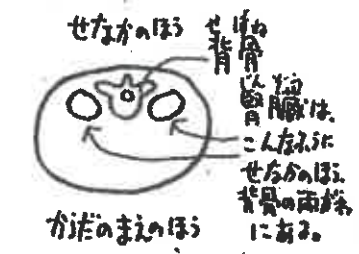 せなかのほう
せぼね
背骨
じんぞう
腎臓は、
こんなふうに
せなかのほう、
背骨の両がわ
にある。
からだのまえのほう